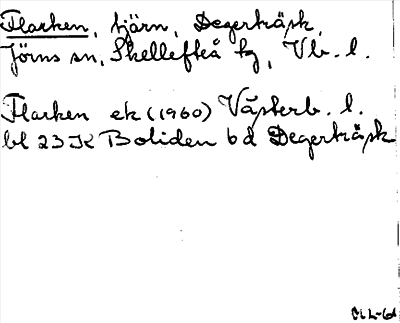 Flarken, tjärn, Degerträsk,
Jörns sn, Skellefteå tg, Vb. l.
Flarken ek (1960) Västerb. l.
bl 23 K Boliden 6 d Degerträsk